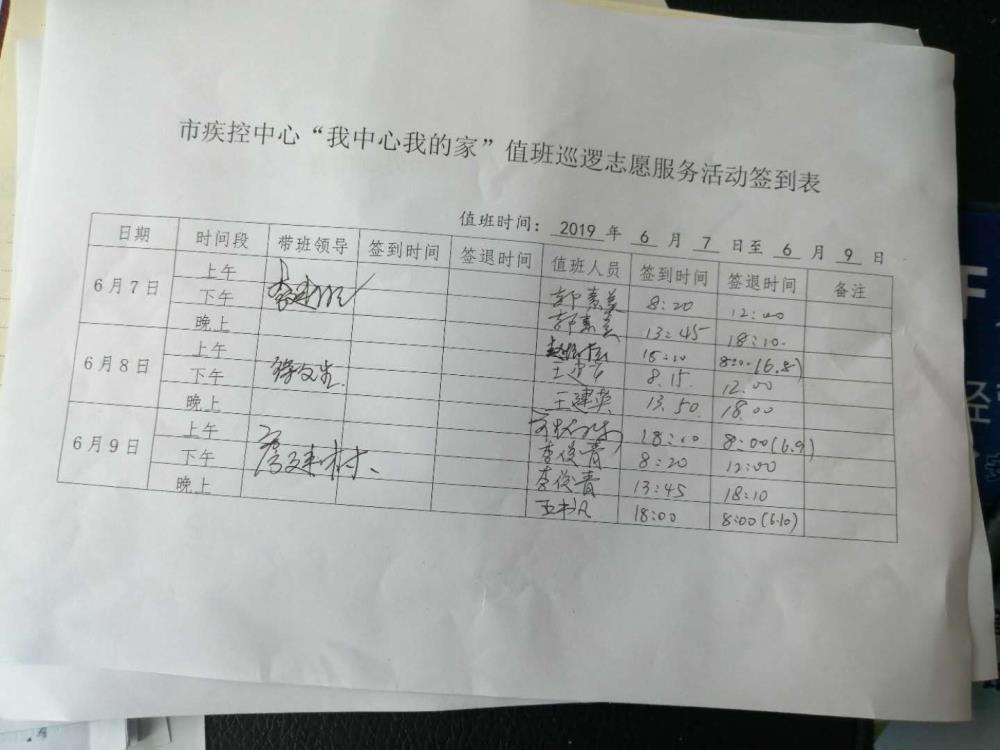 市疾控中心“我中心我的家”值班巡逻志愿服务活动签到表
值班时间： 2019 年 6 月 7 日至 6 月 9 日
日期 时间段 带班领导 签到时间 签退时间 值班人员 签到时间 签退时间 备注
6月7日 上午 郭素美 8:20 12:00
下午 郭素美 13:45 18:10.
晚上 18:00 8:00(6.8)
6月8日 上午 王建英 8.15. 12.00
下午 王建英 13.50. 18.00
晚上 18:00 8:00(6.9)
6月9日 上午 李俊青 8:20 12:00
下午 李俊青 13:45 18:10
晚上 18:00 8:00(6.10)